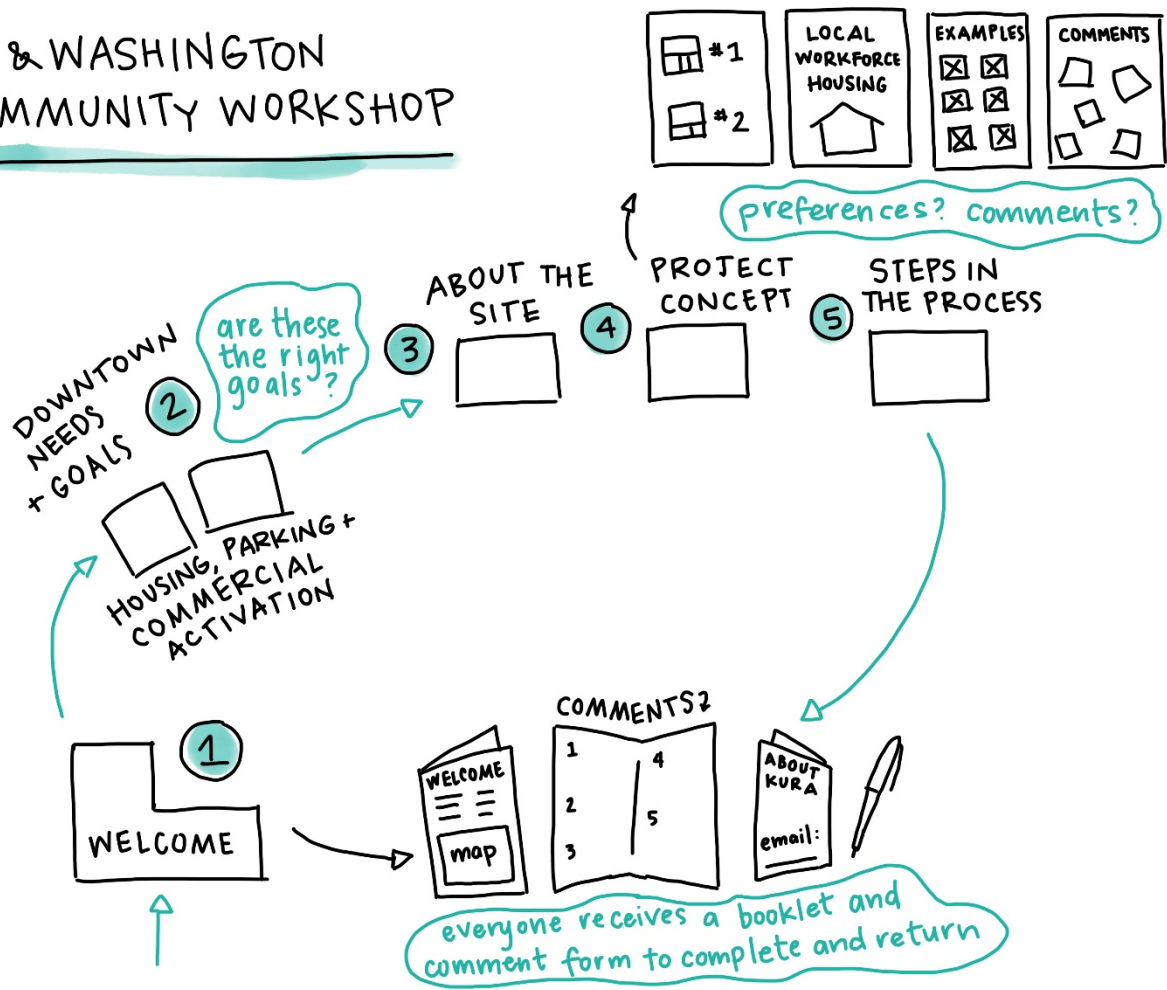 & WASHINGTON
MMUNITY WORKSHOP
#1
#2
LOCAL
WORKFORCE
HOUSING
EXAMPLES
COMMENTS
preferences? comments?
1
WELCOME
2
DOWNTOWN
NEEDS
+ GOALS
are these
the right
goals ?
HOUSING, PARKING +
COMMERCIAL
ACTIVATION
3
ABOUT THE
SITE
4
PROJECT
CONCEPT
5
STEPS IN
THE PROCESS
WELCOME
map
COMMENTS?
1
2
3
4
5
ABOUT
KURA
email:
everyone receives a booklet and
comment form to complete and return